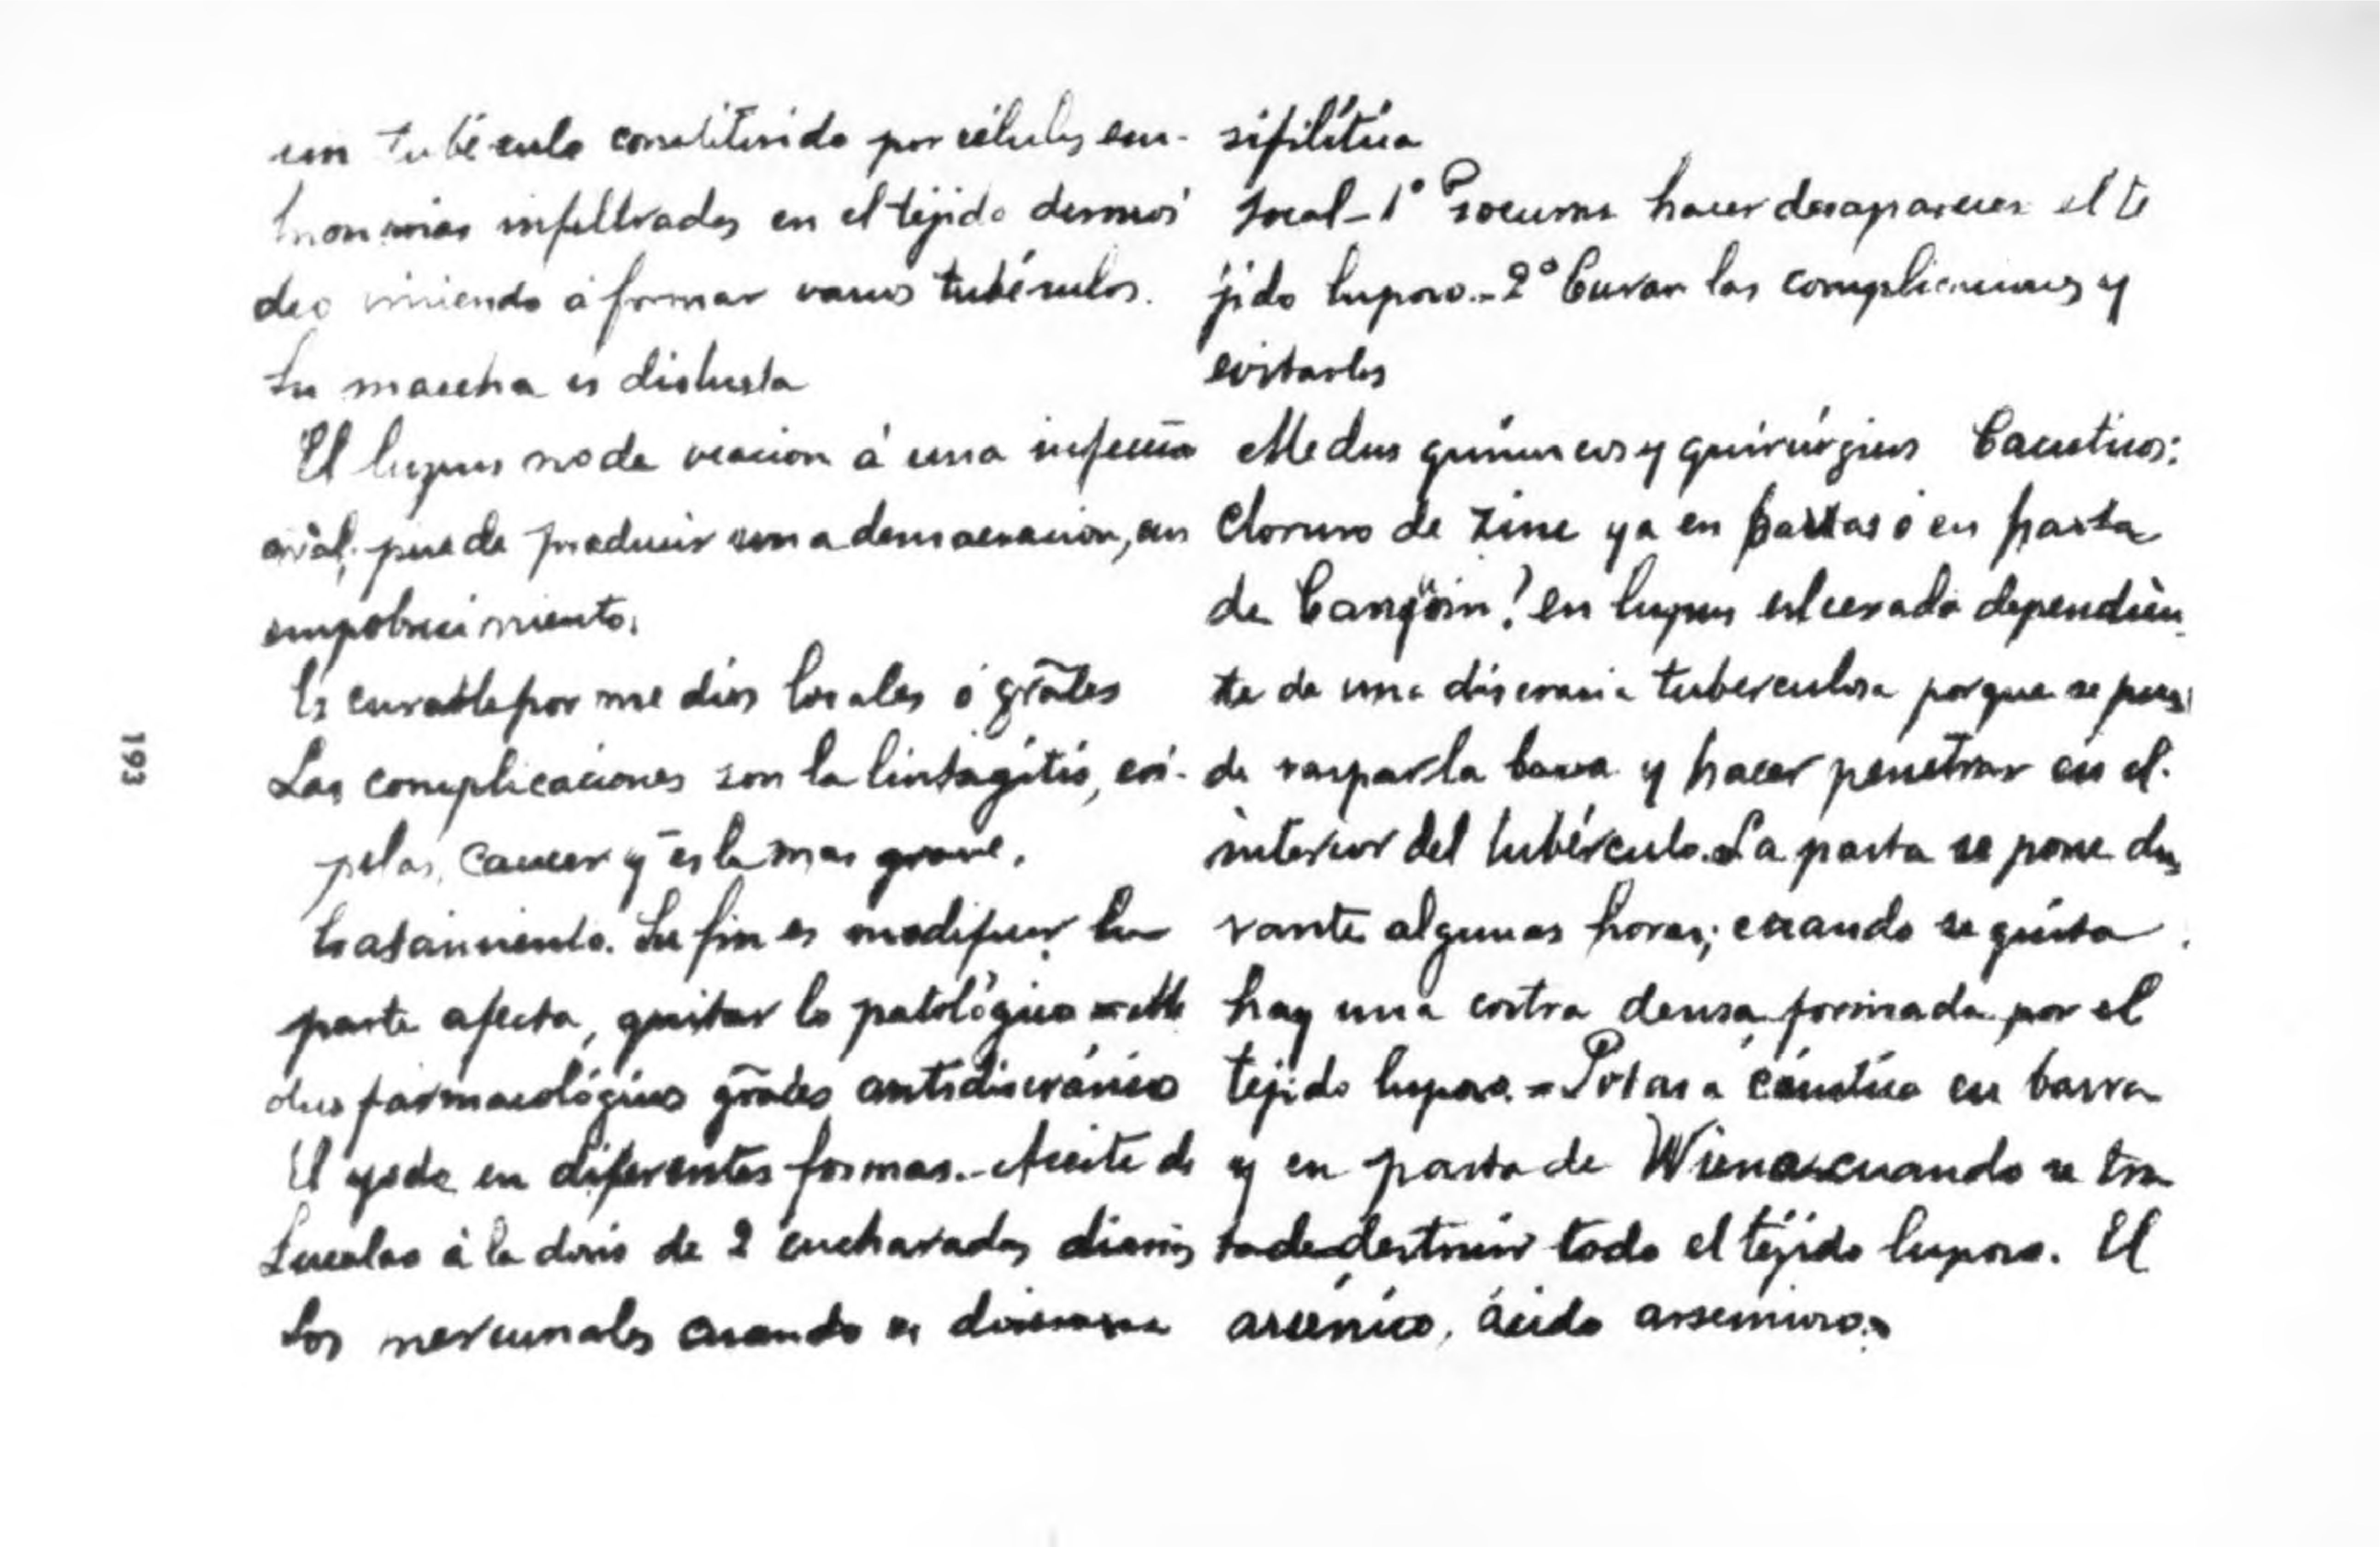 un tubérculo constituido por células em-
infiltradas en el tejido dermoi
deo viniendo á formar varios tubérculos.
Su marcha es
El lupus no da reacion á una
puede producir una demacracion, un
empobrecimiento.
Es curable por medios locales ó grāles
Las complicaciones son la linfagitis, eri-
pelas, cancer y es la mas grave.
tratamiento. Su fin es modificar la
parte afecta, quitar lo patológico
dios farmacológicos grāles antidiscrásicos
El yodo en diferentes formas.- Aceite de
á la dosis de 2 cucharadas diarias
Los mercuriales cuando es discrasia
sifilítica
Local - 1º Procurar hacer desaparecer el te
jido luposo.- 2º Curar las complicaciones y
evitarlas
Medios químicos y quirúrgicos Caústicos:
Cloruro de Zinc ya en barras ó en pasta
de en lupus ulcerado dependien
te de una discrasia tuberculosa porque se pue
de raspar la barra y hacer penetrar en el
interior del tubérculo. La pasta se pone du
rante algunas horas; cuando se quita
hay una costra densa formada por el
tejido luposo. = Potasa cáustica en barra
y en pasta de Viena cuando se tra
ta de destruir todo el tejido luposo. El
arsénico, ácido arsenioso.
193